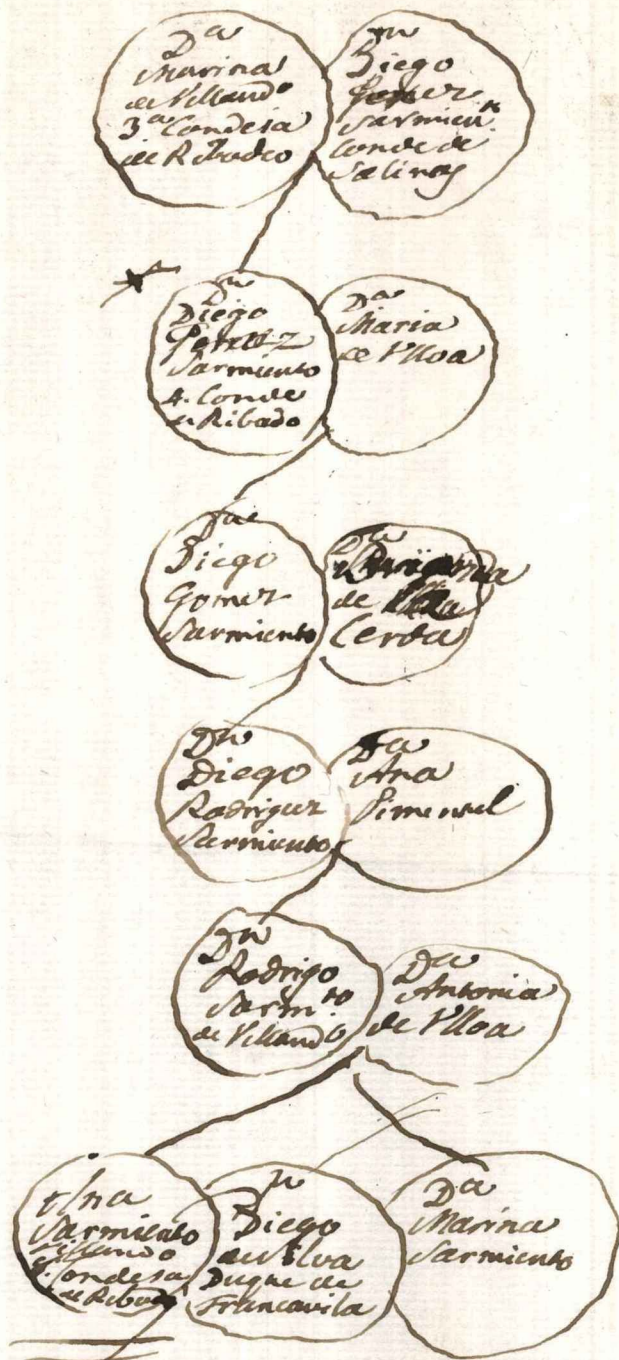 Da
Marina
de Villando
3a Condesa
de Ribadeo
Dn
Diego
Gomez
Sarmiento
Conde de
Salinas
Dn
Diego
Perez
Sarmiento
4. Conde
de Ribado
Da
Maria
de Ulloa
Dn
Diego
Gomez
Sarmiento
Da
de
Cerda
Dn
Diego
Rodriguez
Sarmiento
Da
Ana
Pimentel
Dn
Rodrigo
Sarmto
de Villando
Da
Antonia
de Ulloa
Ana
Sarmiento
Villando
Condesa
de Ribado
Dn
Diego
de Silva
Duque de
Francavila
Da
Marina
Sarmiento